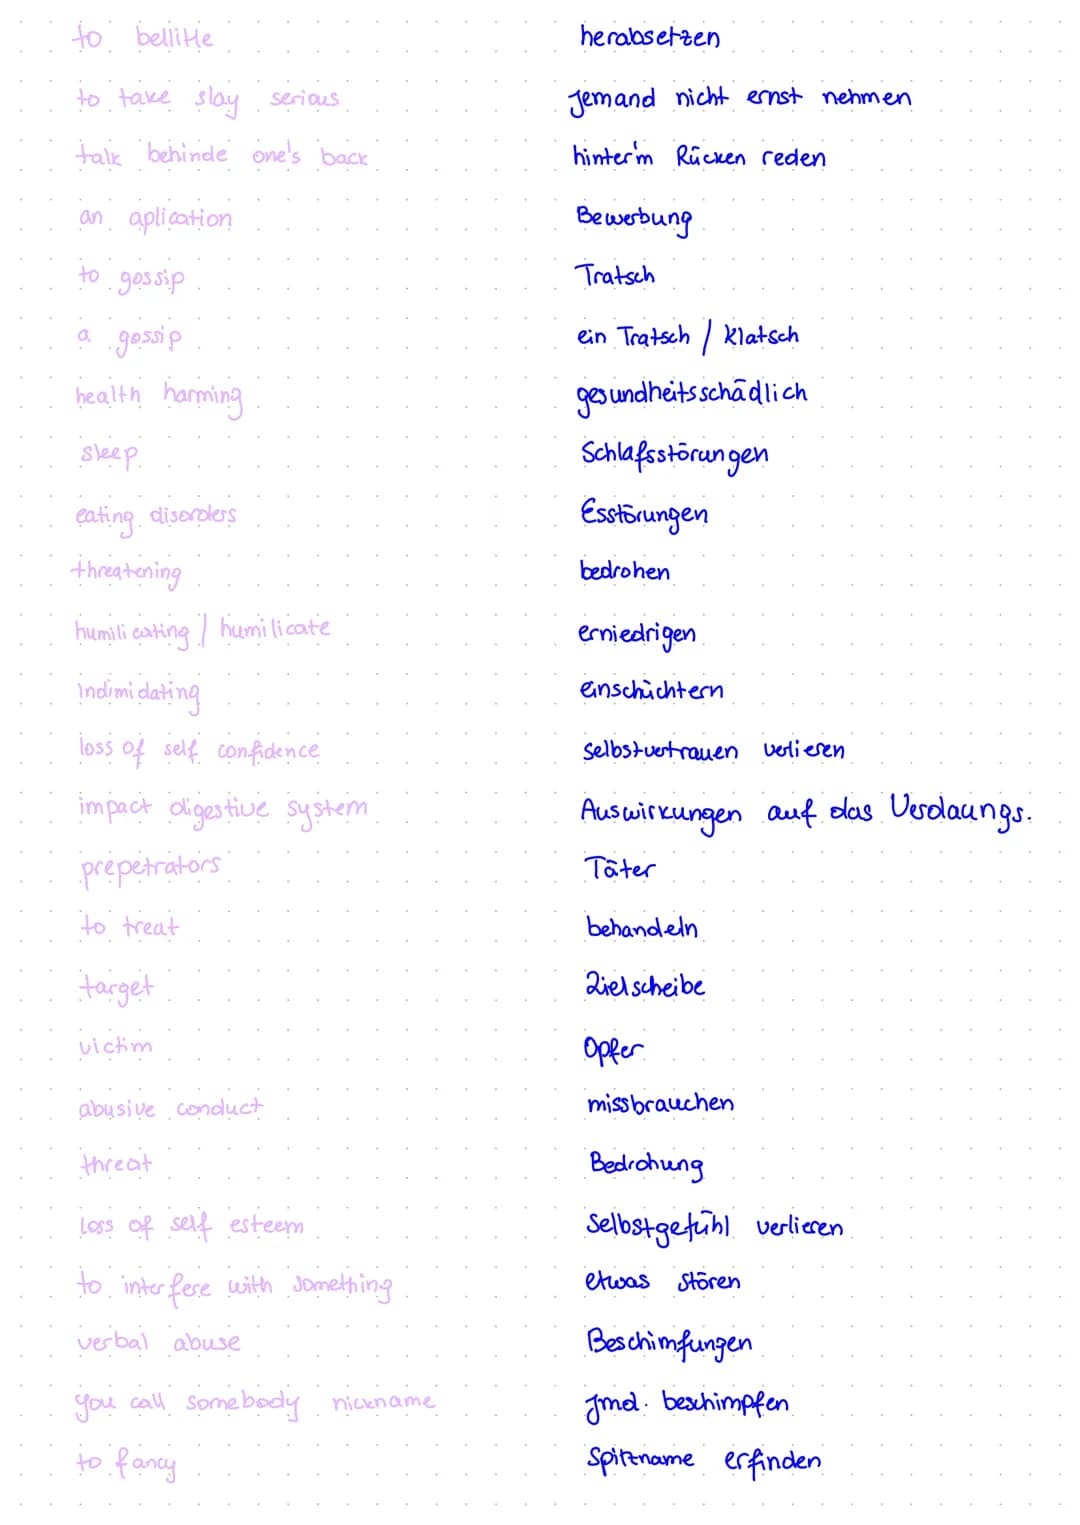 to bellitle herabsetzen
to take slay serious jemand nicht ernst nehmen
talk behinde one's back hinter'm Rücken reden
an aplication Bewerbung
to gossip Tratsch
a gossip ein Tratsch / Klatsch
health harming gesundheitsschädlich
sleep Schlafsstörungen
eating disorders Esstörungen
threatening bedrohen
humilicating / humilicate erniedrigen
indimidating einschüchtern
loss of self confidence selbstvertrauen verlieren
impact digestive system Auswirkungen auf das Verdaungs.
prepetrators Täter
to treat behandeln
target Zielscheibe
victim Opfer
abusive conduct missbrauchen
threat Bedrohung
loss of self esteem Selbstgefühl verlieren
to interfere with something etwas stören
verbal abuse Beschimfungen
you call somebody nickname jmd. beschimpfen
to fancy Spitzname erfinden